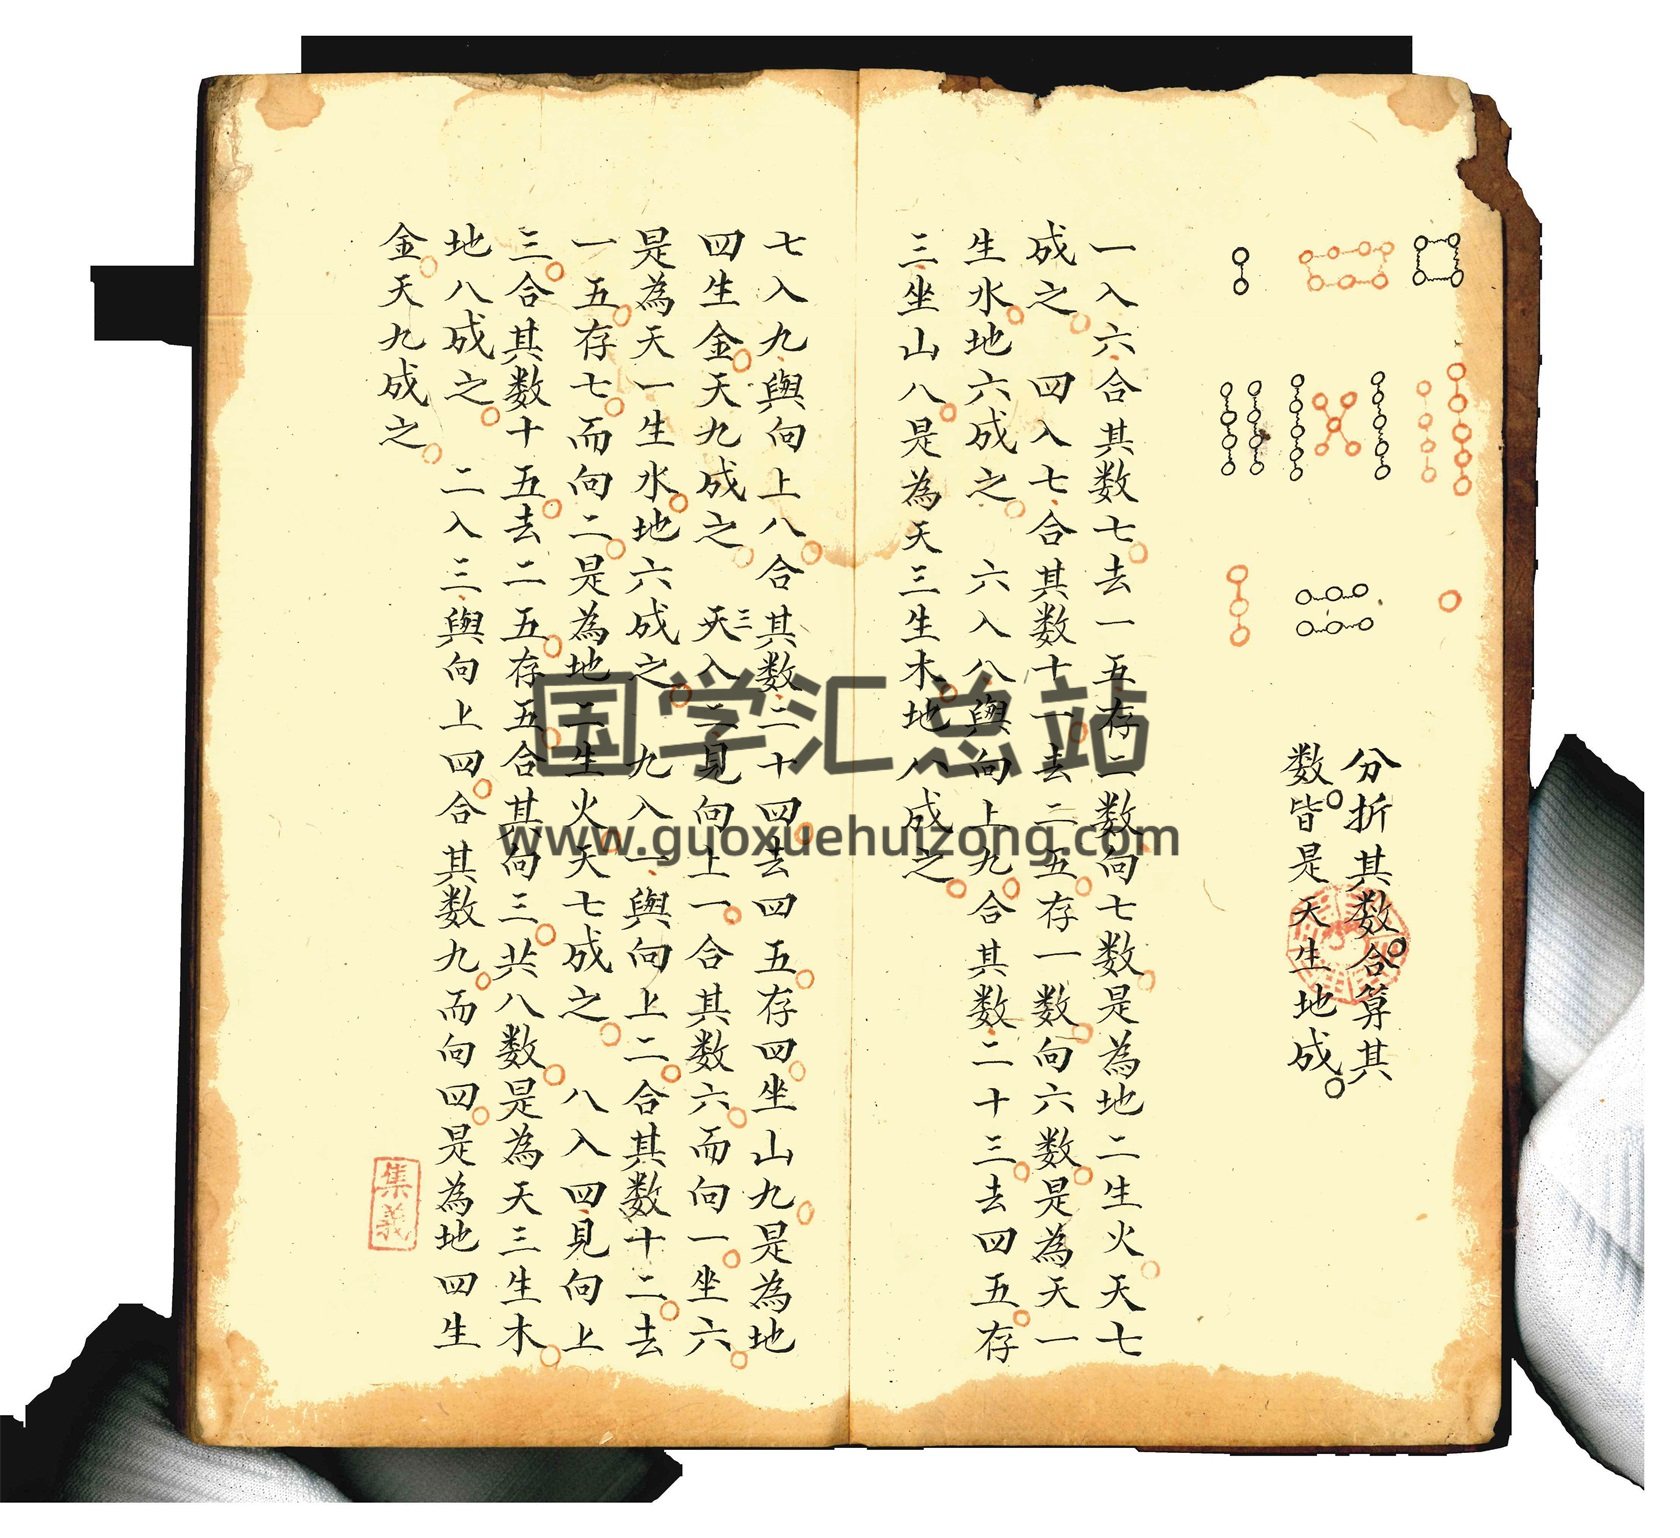 分折其数合算其
数皆是天生地成
一入六合其数七去一五存二数向七数是為地二生火天七
成之 四入七合其数十一去二五存一数向六数是為天一
生水地六成之 六入八與向上九合其数二十三去四五存
三坐山八是為天三生木地八成之
七入九與向上八合其数二十四去四五存四坐山九是為地
四生金天九成之 三入二見向上一合其数六而向一坐六
是為天一生水地六成之 九入一與向上二合其数十二去
一五存七而向二是為地二生火天七成之 八入四見向上
三合其数十五去二五存五合其向三共八数是為天三生木
地八成之 二入三與向上四合其数九而向四是為地四生
金天九成之
集義
国学汇总站
www.guoxuehuizong.com